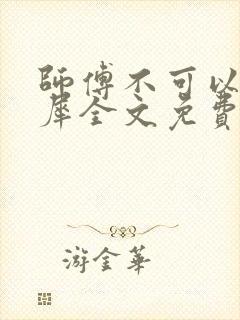 師傅不可以
犀全文免費
游金華